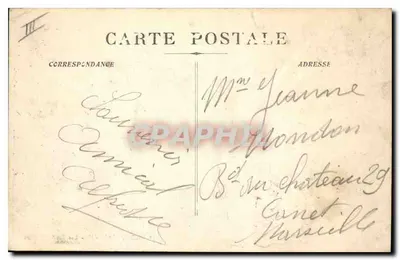 III
CARTE POSTALE
CORRESPONDANCE
ADRESSE
Souvenir
Amical
Mme Jeanne
Mondon
Bd du chateau 29
Canet
Marseille
CPAPHIL